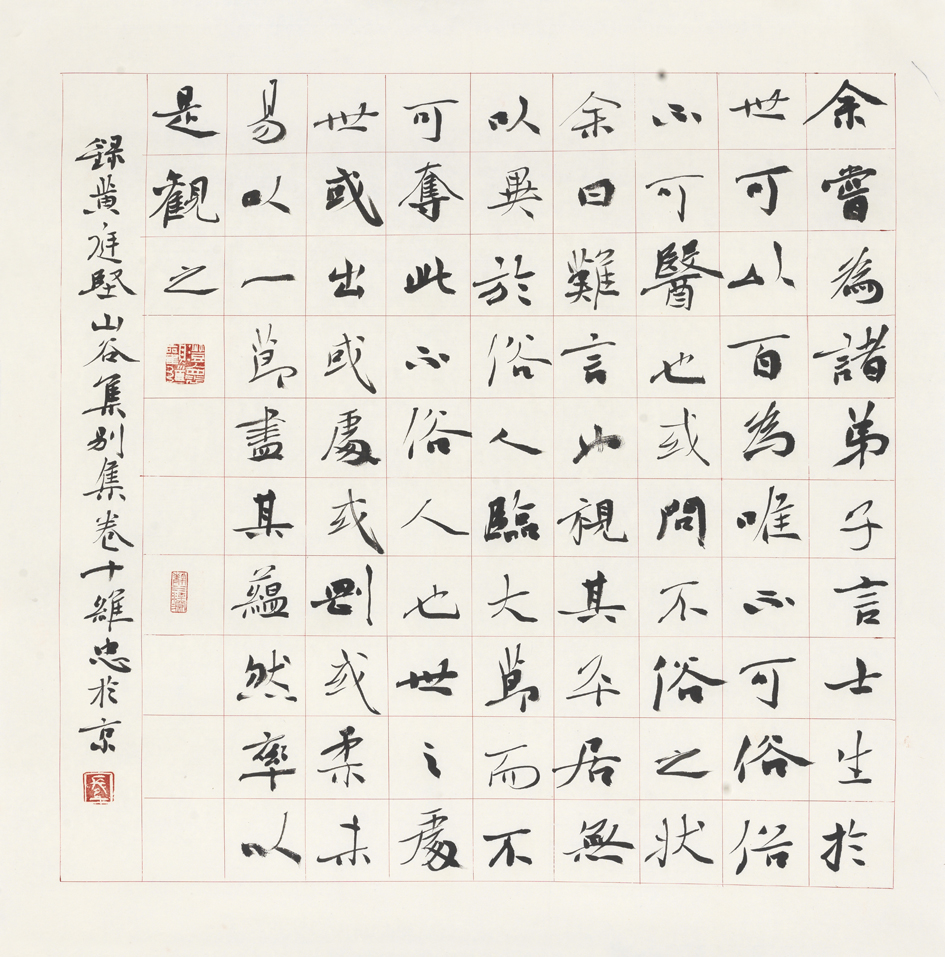 余嘗為諸弟子言士生於
世可以百為唯不可俗俗
不可醫也或問不俗之狀
余曰難言也視其平居無
以異於俗人臨大節而不
可奪此不俗人也世之處
世或出或處或剛或柔未
易以一節盡其蘊然率以
是觀之
録黄庭堅山谷集別集卷十維忠於京